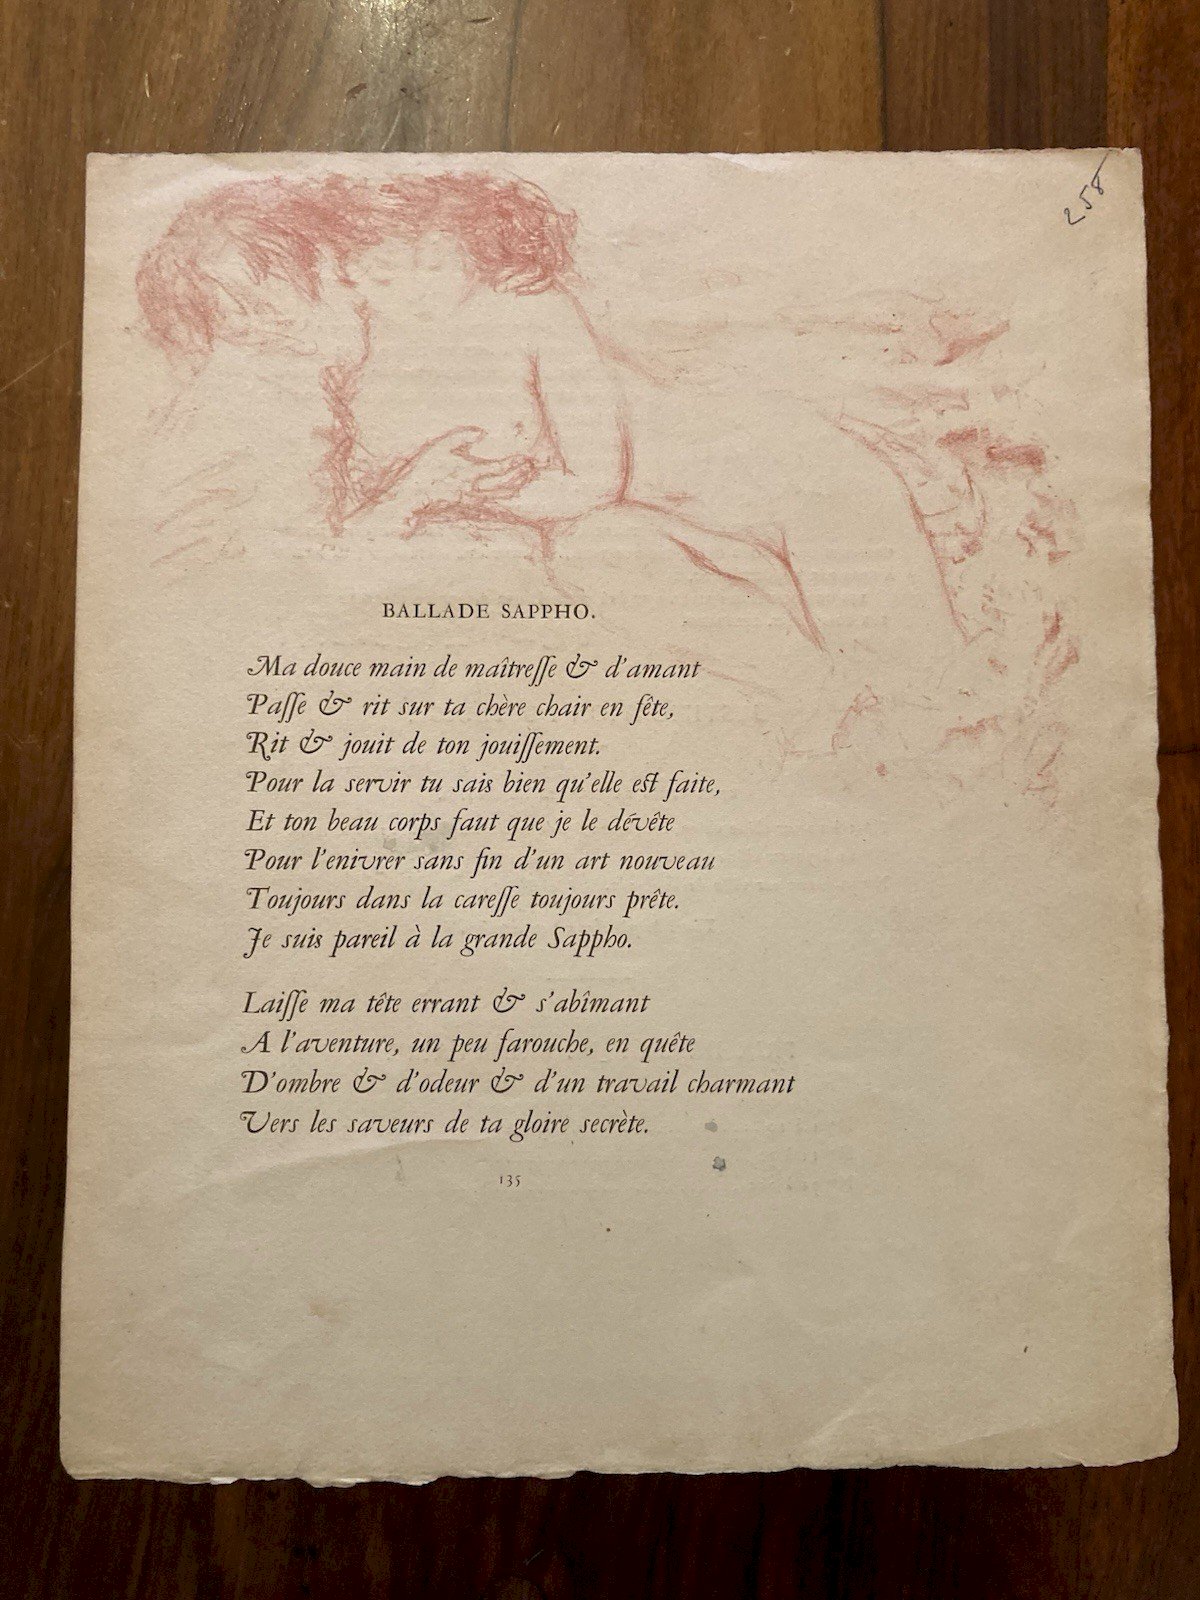 258
BALLADE SAPPHO.
Ma douce main de maîtreſſe & d'amant
Paſſe & rit sur ta chère chair en fête,
Rit & jouit de ton jouiſſement.
Pour la servir tu sais bien qu'elle est faite,
Et ton beau corps faut que je le dévête
Pour l'enivrer sans fin d'un art nouveau
Toujours dans la careſſe toujours prête.
Je suis pareil à la grande Sappho.
Laiſſe ma tête errant & s'abîmant
A l'aventure, un peu farouche, en quête
D'ombre & d'odeur & d'un travail charmant
Vers les saveurs de ta gloire secrète.
135